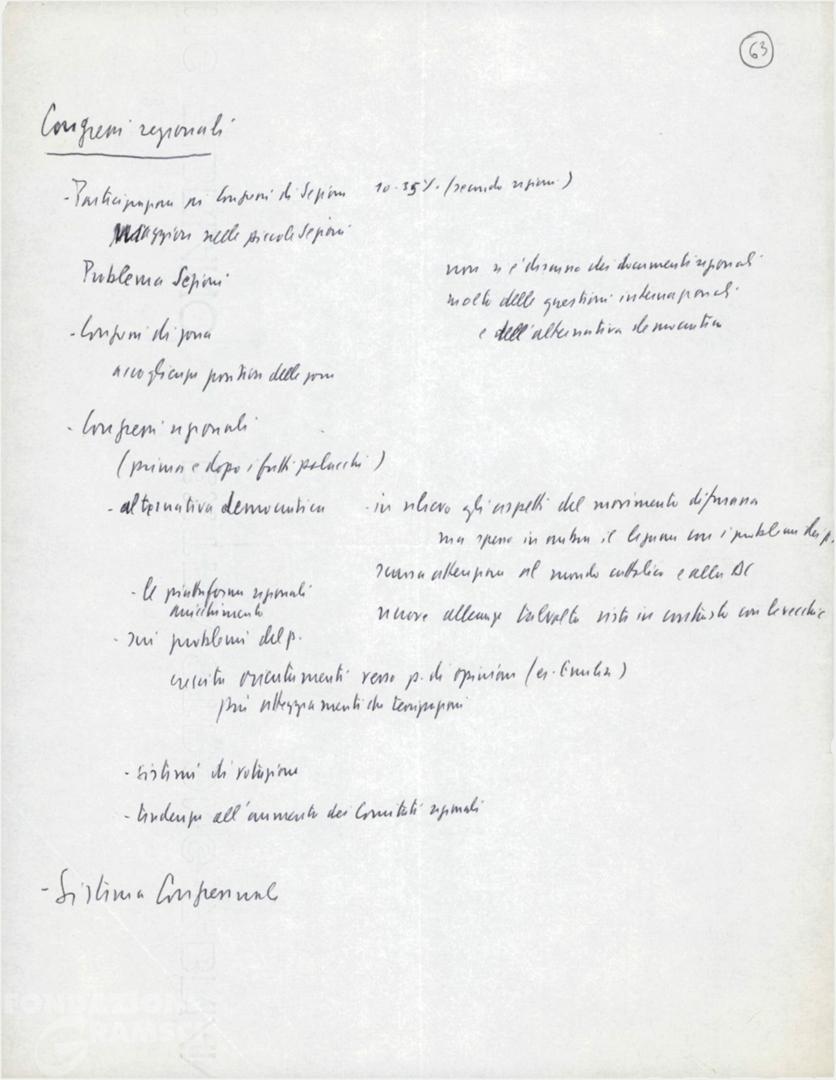 63
Congressi regionali
- Partecipazione ai Congressi di Sezione 10-35% (secondo regioni)
Maggiore nelle piccole Sezioni
Problema Sezioni
non si è discusso dei documenti regionali
molto delle questioni internazionali
e dell'alternativa democratica
- Congressi di zona
accoglienza positiva delle zone
- Congressi regionali
(prima e dopo i fatti polacchi)
- alternativa democratica
- in rilievo gli aspetti del movimento di massa
ma spesso in ombra il legame con i problemi del p.
scarsa attenzione al mondo cattolico e alla DC
nuove alleanze talvolta viste in contrasto con le vecchie
- le piattaforme regionali
arricchimento
- sui problemi del p.
crescita orientamenti verso p. di opinione (es. Emilia)
più atteggiamenti che
- sistemi di votazione
- tendenza all'aumento dei Comitati regionali
- Sistema Congressuale
FONDAZIONE
GRAMSCI